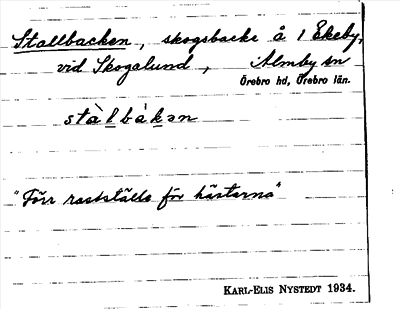 Stallbacken, skogsbacke å 1 Ekeby,
vid Skogalund, Almby sn
Örebro hd, Örebro län.
stàl̲bàk̲ən
"Förr rastställe för hästarna"
KARL-ELIS NYSTEDT 1934.